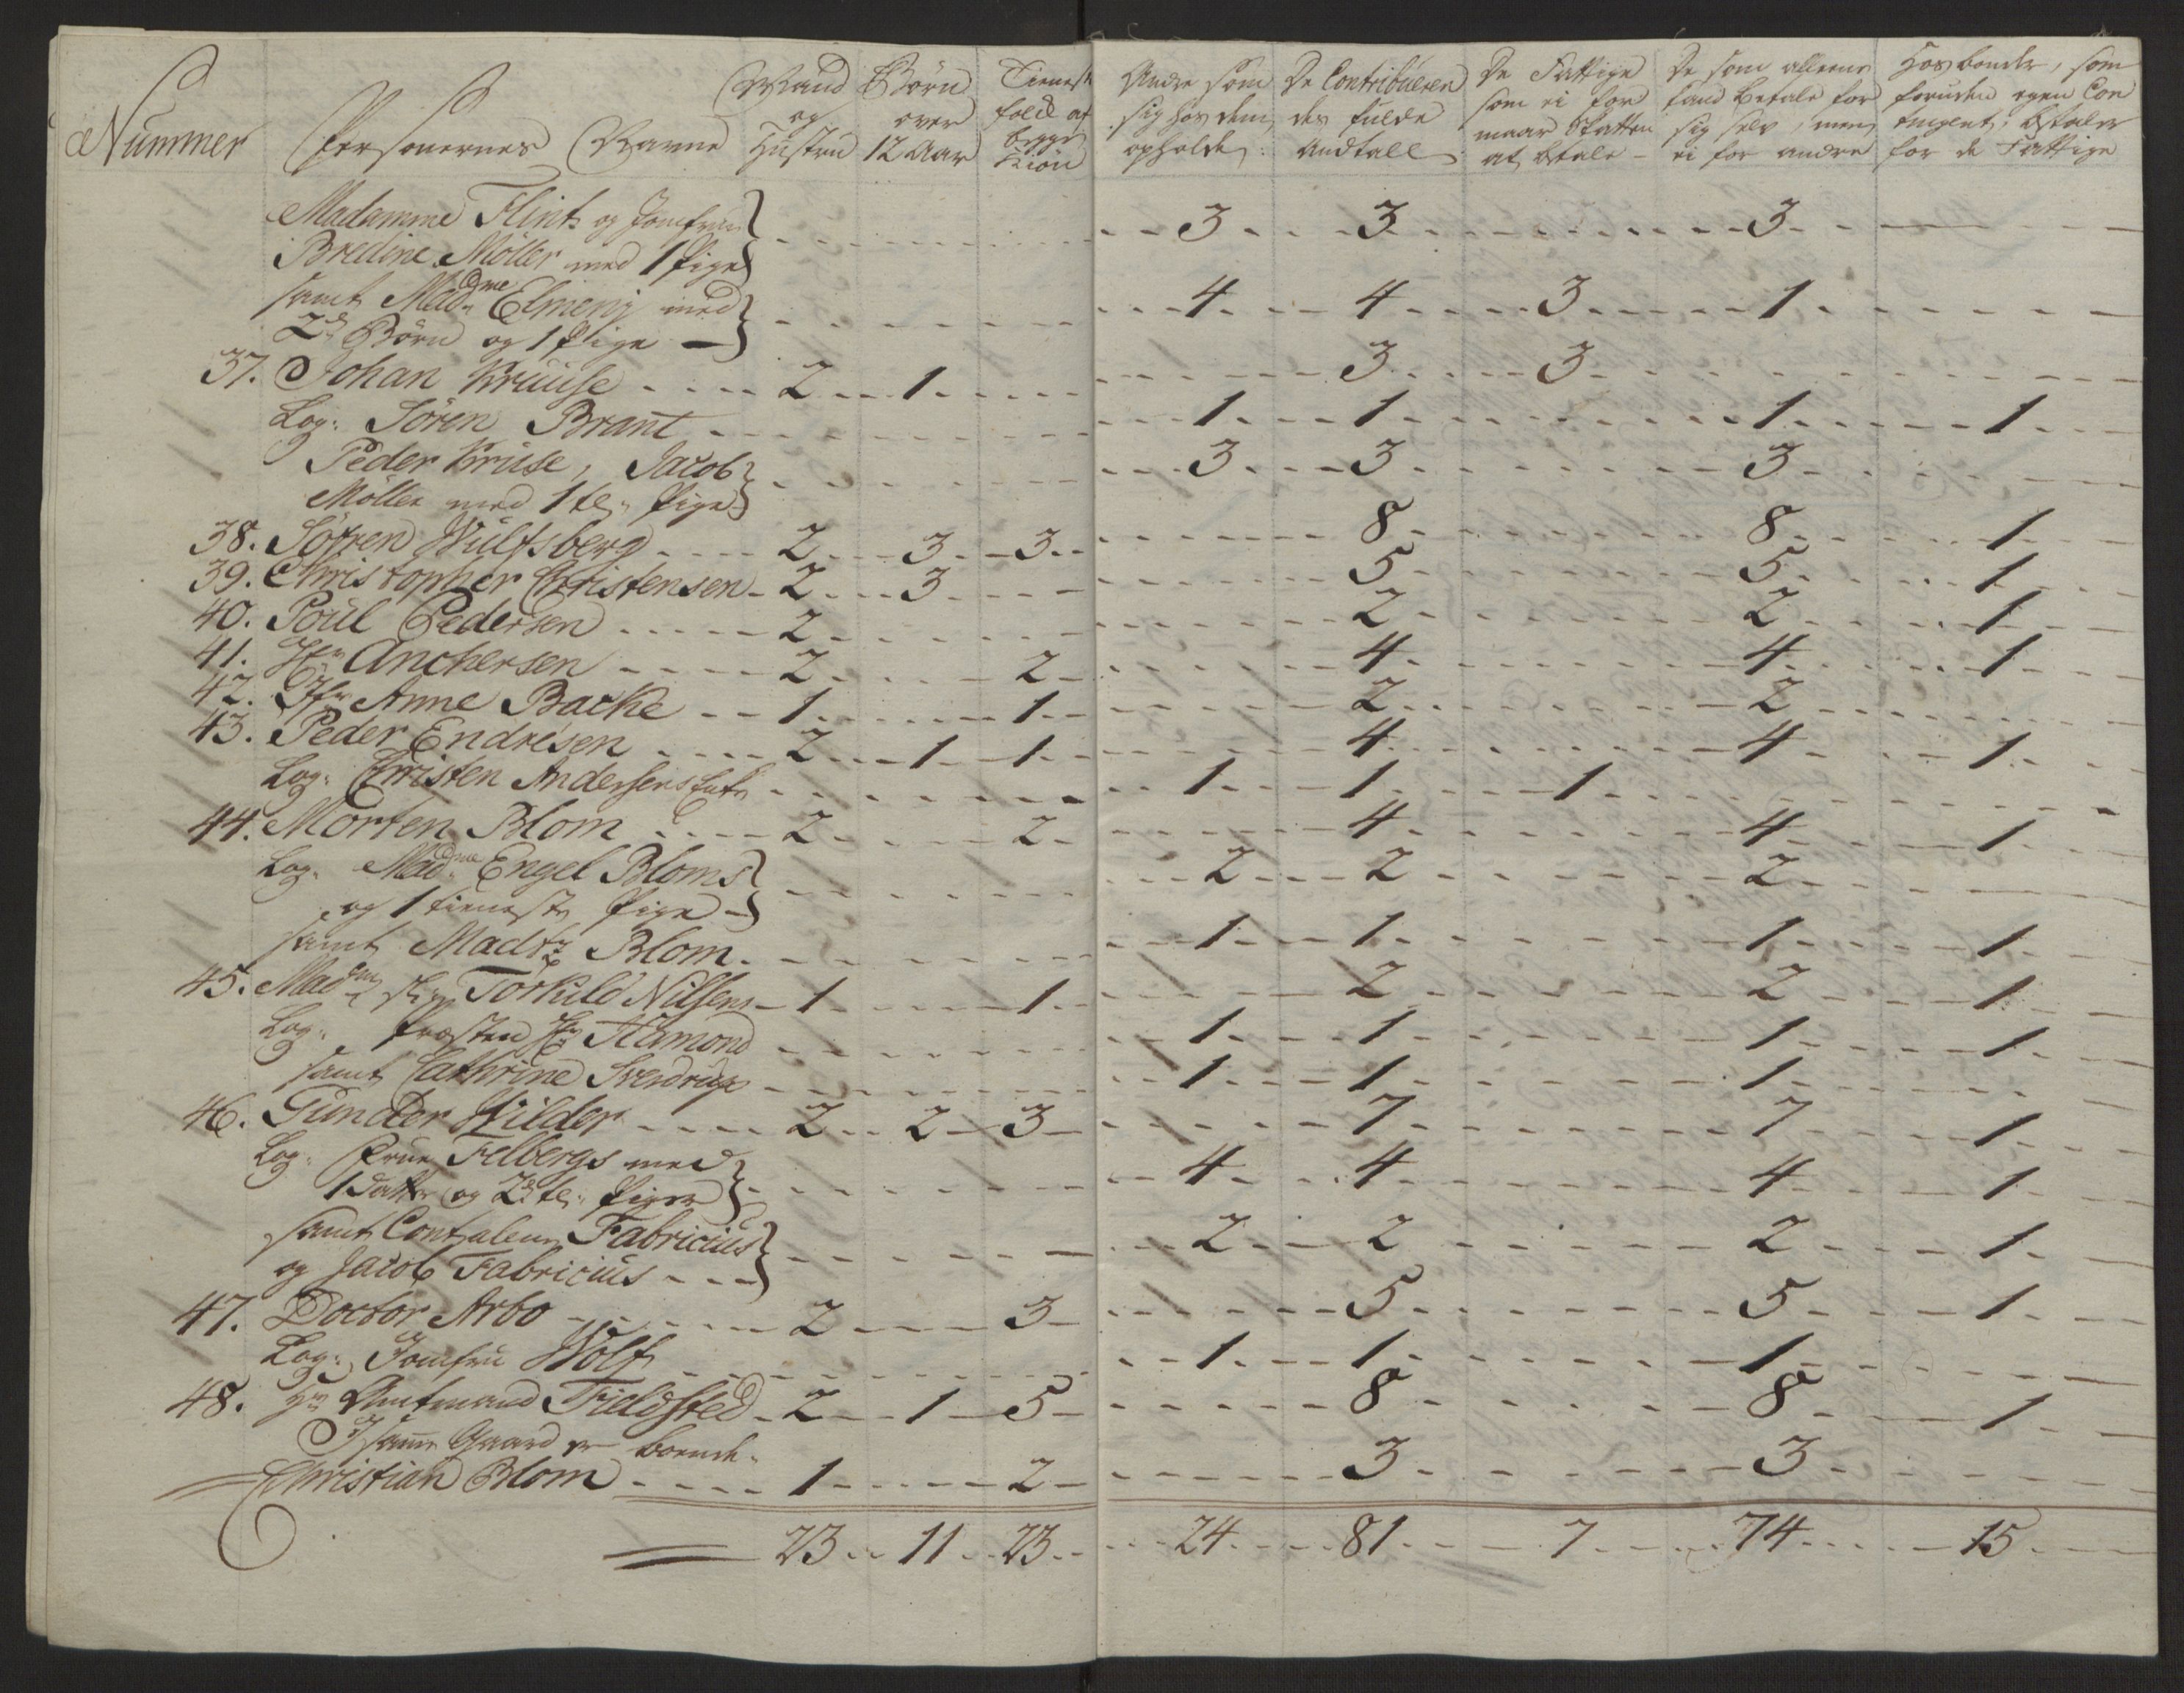 Nummer Personernes Navne Mand og Hustru Børn over 12 Aar Tieneste folck af begge Kiøn Andre som sig hos dem opholde De Contribueren des fulde Andtall De Fattige som ei for maar Skatten at betale De som alleene kand betale for sig selv, men ei for andre Hosbonder, som foruden egen Con tingent, betaler for de Fattige
Madamme Flint og Jomfrue
Bredine Möller med 1 Pige 3 3 3
samt Madme Elmenj med
2de Börn og 1 Pige 4 4 3 1
37. Johan Kruuse 2 1 3 3
Log: Sören Brant 1 1 1 1
Peder Kruse, Jacob
Möller med 1 te: Pige 3 3 3
38. Sören Wulfsberg 2 3 3 8 8 1
39. Christopher Christensen 2 3 5 5 1
40. Poul Pedersen 2 2 2 1
41. Hr Anchersen 2 2 4 4 1
42. Jfr Anne Backe 1 1 2 2
43. Peder Endresen 2 1 1 4 4 1
Log: Christen Andersens Enke 1 1 1
44. Morten Blom 2 2 4 4 1
Log: Madme Engel Bloms
og 1 tieneste Pige 2 2 2
samt Madtz Blom 1 1 1 1
45. Madme Torkild Nilsens 1 1 2 2 1
Log: Præsten Hr Hamond 1 1 1 1
samt Cathrine Sverdrup 1 1 1
46. Gunder Wilder 2 2 3 7 7 1
Log: Frue Felbergs med
1 Datter og 2de te: Piger 4 4 4 1
samt Fabricius
og Jacob Fabricius 2 2 2 1
47. Doctor Arbo 2 3 5 5 1
Log: Jomfru Wolf 1 1 1
48. Hr Amtmand Fieldsted 2 1 5 8 8 1
J samme Gaard er boende
Christian Blom 1 2 3 3
23 11 23 24 81 7 74 15